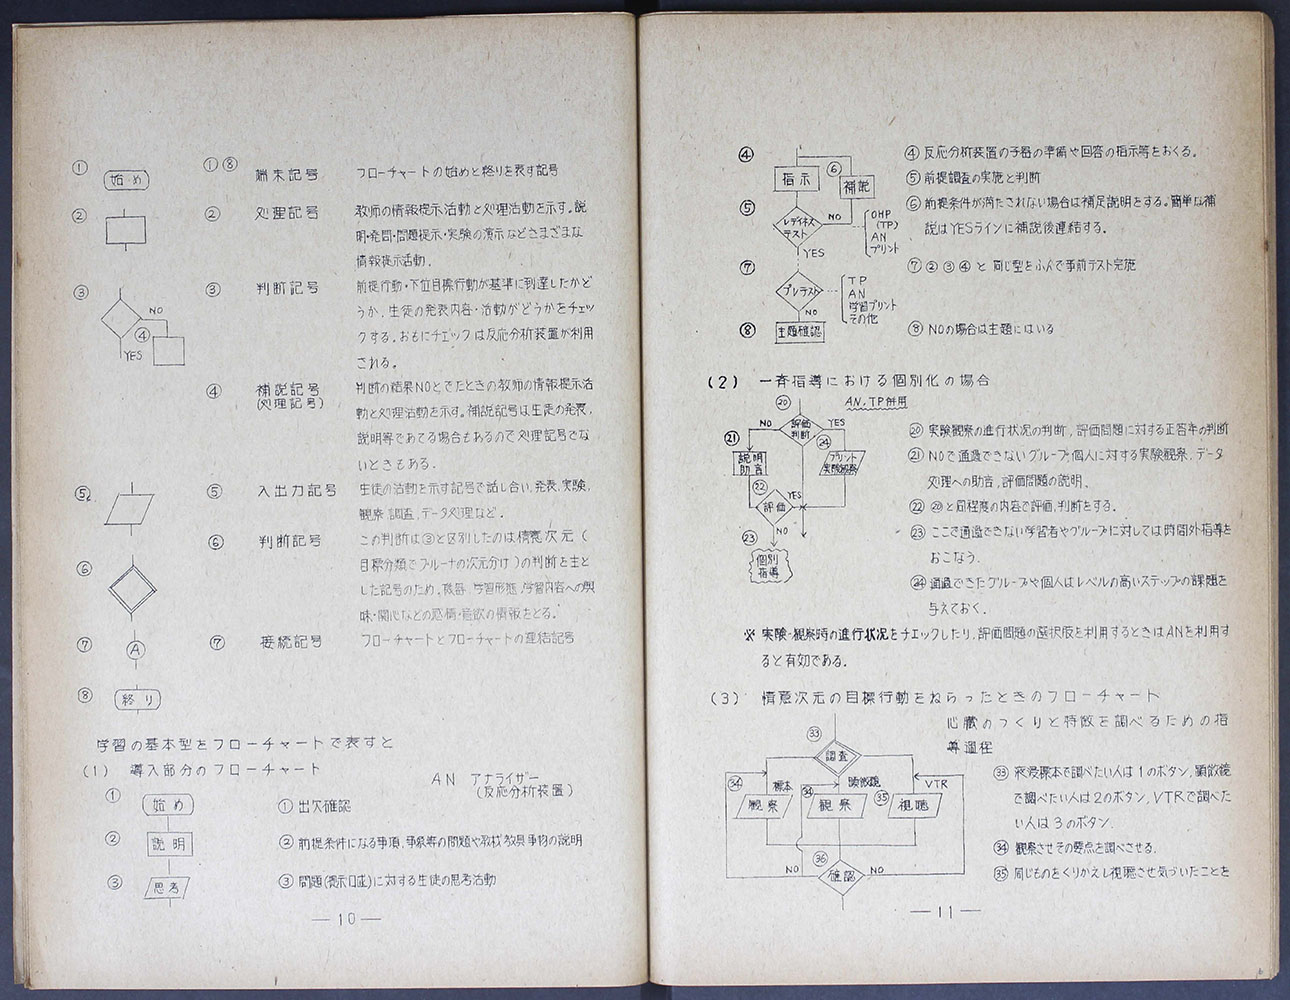 ①
始め
①⑧
端末記号
フローチャートの始めと終りを表す記号
②
②
処理記号
教師の情報提示活動と処理活動を示す。説
明・発問・問題提示・実験の演示などさまざまな
情報提示活動.
③
NO
④
YES
③
判断記号
前提行動・下位目標行動が基準に到達したかど
うか、生徒の発表内容・活動がどうかをチェッ
クする。おもにチェックは反応分析装置が利用
される。
④
補説記号
(処理記号)
判断の結果NOとでたときの教師の情報提示活
動と処理活動を示す。補説記号は生徒の発表,
説明等であてる場合もあるので処理記号でな
いときもある.
⑤
⑤
入出力記号
生徒の活動を示す記号で話し合い,発表,実験,
観察,調査,データ処理など.
⑥
⑥
判断記号
この判断は③と区別したのは情意次元(
目標分類でブルーナの次元分け)の判断を主と
した記号のため,機器,学習形態,学習内容への興
味・関心などの感情・意欲の情報をとる.
⑦
A
⑦
接続記号
フローチャートとフローチャートの連結記号
⑧
終り
学習の基本型をフローチャートで表すと
(1) 導入部分のフローチャート
AN アナライザー
(反応分析装置)
①
始め
① 出欠確認
②
説明
② 前提条件になる事項,事象等の問題や教材教具事物の説明
③
思考
③ 問題(掲示口述)に対する生徒の思考活動
—10—
④
指示
⑥
補説
④ 反応分析装置の子器の準備や回答の指示等をおくる。
⑤ 前提調査の実施と判断
⑤
レディネス
テスト
NO
YES
OHP
(TP)
AN
プリント
⑥ 前提条件が満たされない場合は補足説明をする。簡単な補
説はYESラインに補説後連結する。
⑦
プレテスト
NO
TP
AN
学習プリント
その他
⑦ ②③④と同じ型をふんで事前テスト実施
⑧
主題確認
⑧ NOの場合は主題にはいる
(2) 一斉指導における個別化の場合
AN,TP併用
⑳
評価
判断
NO
YES
㉑
説明
助言
㉔
プリント
実験観察
㉒
評価
YES
NO
㉓
個別
指導
⑳ 実験観察の進行状況の判断,評価問題に対する正答率の判断
㉑ NOで通過できないグループ個人に対する実験観察,データ
処理への助言,評価問題の説明、
㉒ ⑳と同程度の内容で評価,判断をする。
㉓ ここで通過できない学習者やグループに対しては時間外指導を
おこなう.
㉔ 通過できたグループや個人はレベルの高いステップの課題を
与えておく.
※ 実験・観察時の進行状況をチェックしたり,評価問題の選択肢を利用するときはANを利用す
ると有効である.
(3) 情意次元の目標行動をねらったときのフローチャート
心臓のつくりと特徴を調べるための指
導過程
㉝
調査
㉞
標本
観察
㉞
顕微鏡
観察
㉟
VTR
視聴
㊱
確認
NO
NO
㉝ 液浸標本で調べたい人は1のボタン,顕微鏡
で調べたい人は2のボタン,VTRで調べた
い人は3のボタン.
㉞ 観察させその要点を調べさせる.
㉟ 同じものをくりかえし視聴させ気づいたことを
—11—